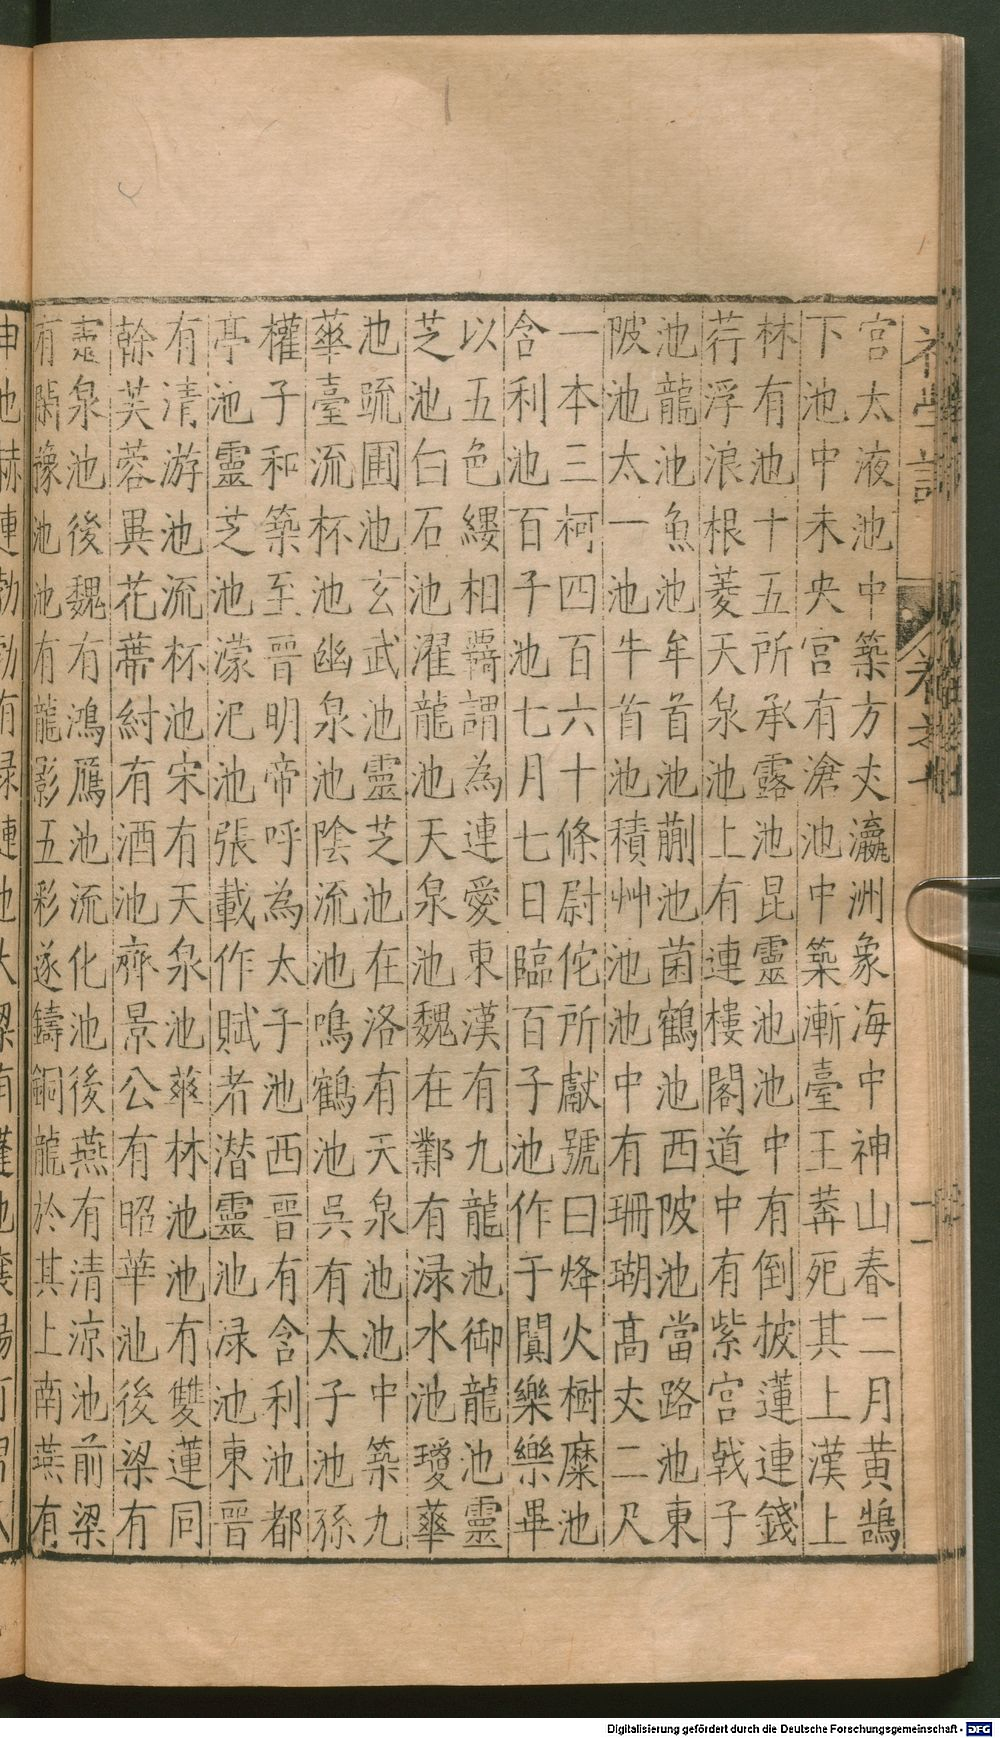 初學記 卷之七 十一
宮太液池中築方丈瀛洲象海中神山春二月黃鵠
下池中未央宮有滄池中築漸臺王莽死其上漢上
林有池十五所承露池昆靈池池中有倒披蓮連錢
荇浮浪根菱天泉池上有連樓閣道中有紫宮戟子
池龍池魚池牟首池蒯池菌鶴池西陂池當路池東
陂池太一池牛首池積艸池池中有珊瑚高丈二尺
一本三柯四百六十條尉佗所獻號曰烽火樹糜池
含利池百子池七月七日臨百子池作于闐樂樂畢
以五色縷相羈謂為連愛東漢有九龍池御龍池靈
芝池白石池濯龍池天泉池魏在鄴有淥水池瓊華
池疏圃池玄武池靈芝池在洛有天泉池池中築九
華臺流杯池幽泉池陰流池鳴鶴池吳有太子池孫
權子和築至晉明帝呼為太子池西晉有含利池都
亭池靈芝池濛汜池張載作賦者潛靈池淥池東晉
有清游池流杯池宋有天泉池華林池池有雙蓮同
幹芙蓉異花蔕紂有酒池齊景公有昭華池後梁有
靈泉池後魏有鴻鴈池流化池後燕有清涼池前梁
有閑豫池池有龍影五彩遂鑄銅龍於其上南燕有
申池赫連勃勃有
Digitalisierung gefördert durch die Deutsche Forschungsgemeinschaft - DFG